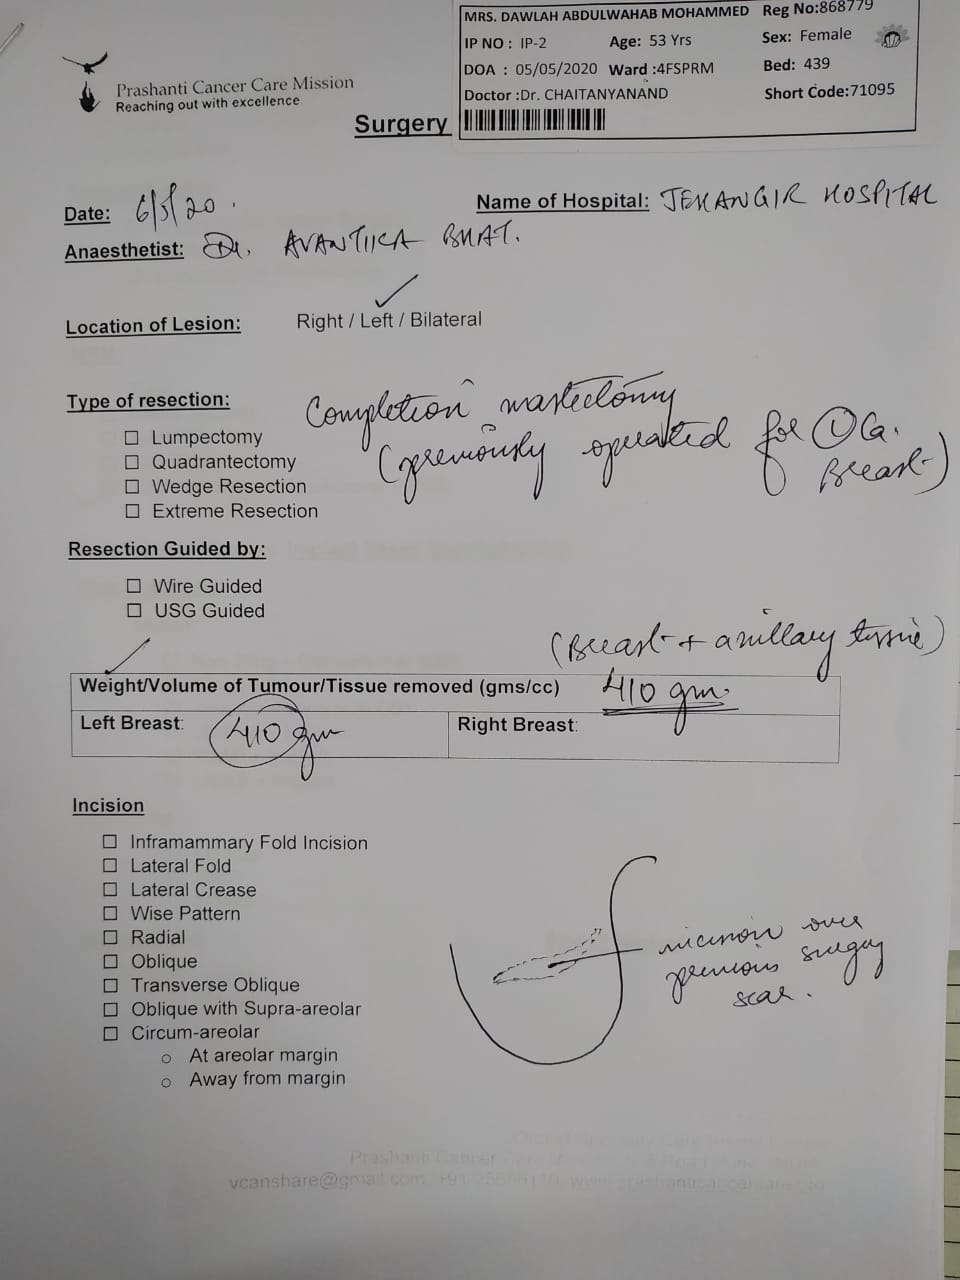 MRS. DAWLAH ABDULWAHAB MOHAMMED Reg No:868779
IP NO : IP-2 Age: 53 Yrs Sex: Female
DOA : 05/05/2020 Ward :4FSPRM Bed: 439
Doctor :Dr. CHAITANYANAND Short Code:71095
Prashanti Cancer Care Mission
Reaching out with excellence
Surgery
Date: 6/5/20. Name of Hospital: JEHANGIR HOSPITAL
Anaesthetist: Dr. AVANTIKA BHAT.
Location of Lesion: Right / Left / Bilateral
Type of resection: Completion mastectomy
(previously operated for (L) Ca. Breast)
☐ Lumpectomy
☐ Quadrantectomy
☐ Wedge Resection
☐ Extreme Resection
Resection Guided by:
☐ Wire Guided
☐ USG Guided
(Breast + axillary tissue)
Weight/Volume of Tumour/Tissue removed (gms/cc) 410 gm.
Left Breast: 410 gm Right Breast:
Incision
☐ Inframammary Fold Incision
☐ Lateral Fold
☐ Lateral Crease
☐ Wise Pattern
☐ Radial
☐ Oblique
☐ Transverse Oblique
☐ Oblique with Supra-areolar
☐ Circum-areolar
o At areolar margin
o Away from margin
incision over
previous surgery
scar.
vcanshare@gmail.com